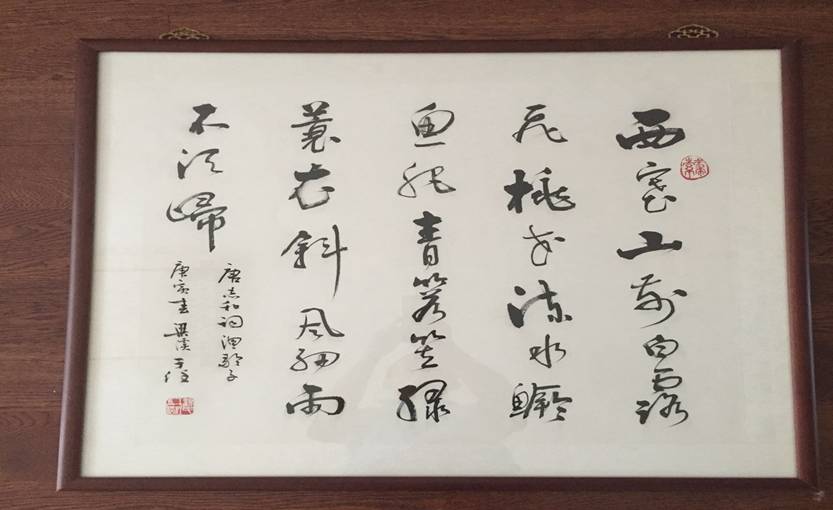 西塞山前白露
飞桃花流水鳜
鱼肥青箬笠绿
蓑衣斜风细雨
不须归
唐志和词渔歌子
庚寅春梁溪